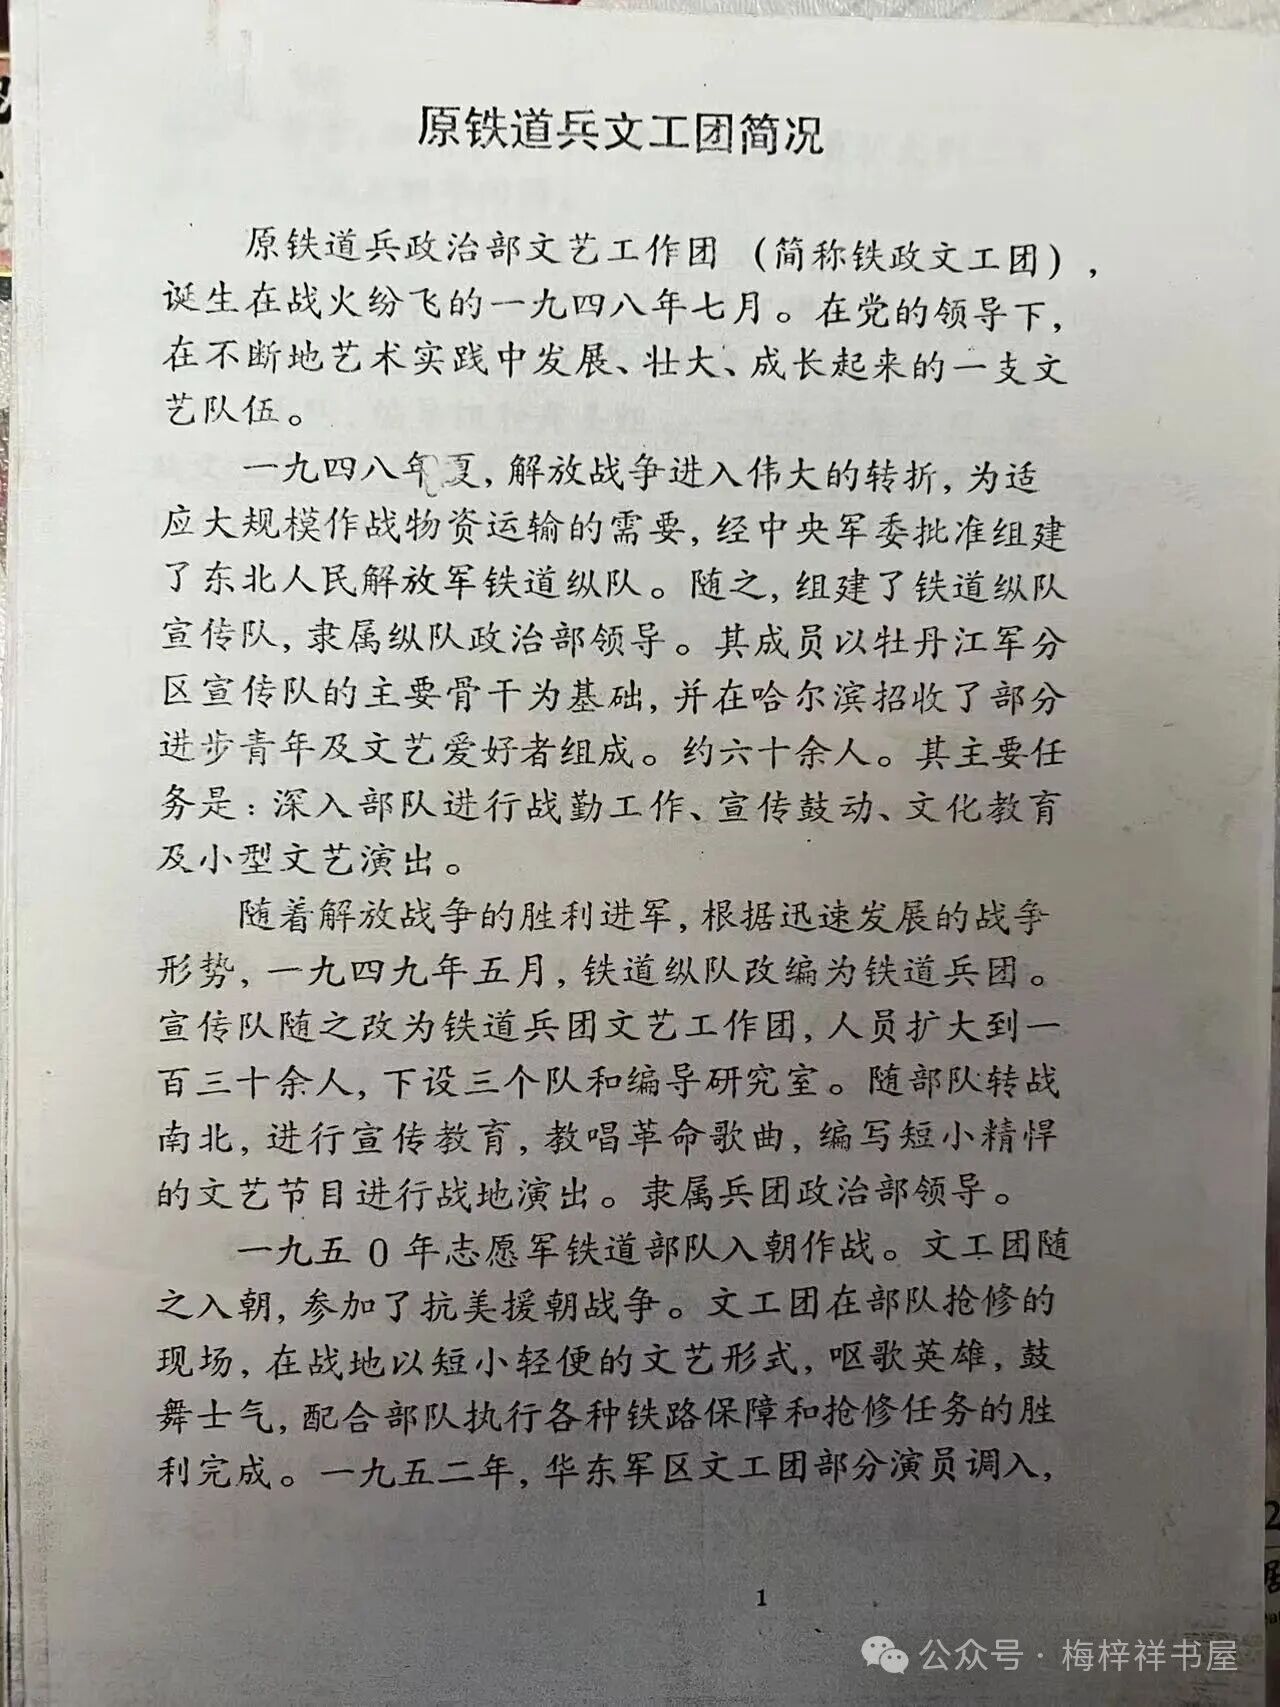 原铁道兵文工团简况
原铁道兵政治部文艺工作团（简称铁政文工团），
诞生在战火纷飞的一九四八年七月。在党的领导下，
在不断地艺术实践中发展、壮大、成长起来的一支文
艺队伍。
一九四八年夏，解放战争进入伟大的转折，为适
应大规模作战物资运输的需要，经中央军委批准组建
了东北人民解放军铁道纵队。随之，组建了铁道纵队
宣传队，隶属纵队政治部领导。其成员以牡丹江军分
区宣传队的主要骨干为基础，并在哈尔滨招收了部分
进步青年及文艺爱好者组成。约六十余人。其主要任
务是：深入部队进行战勤工作、宣传鼓动、文化教育
及小型文艺演出。
随着解放战争的胜利进军，根据迅速发展的战争
形势，一九四九年五月，铁道纵队改编为铁道兵团。
宣传队随之改为铁道兵团文艺工作团，人员扩大到一
百三十余人，下设三个队和编导研究室。随部队转战
南北，进行宣传教育，教唱革命歌曲，编写短小精悍
的文艺节目进行战地演出。隶属兵团政治部领导。
一九五0年志愿军铁道部队入朝作战。文工团随
之入朝，参加了抗美援朝战争。文工团在部队抢修的
现场，在战地以短小轻便的文艺形式，呕歌英雄，鼓
舞士气，配合部队执行各种铁路保障和抢修任务的胜
利完成。一九五二年，华东军区文工团部分演员调入，
1
公众号·梅梓祥书屋